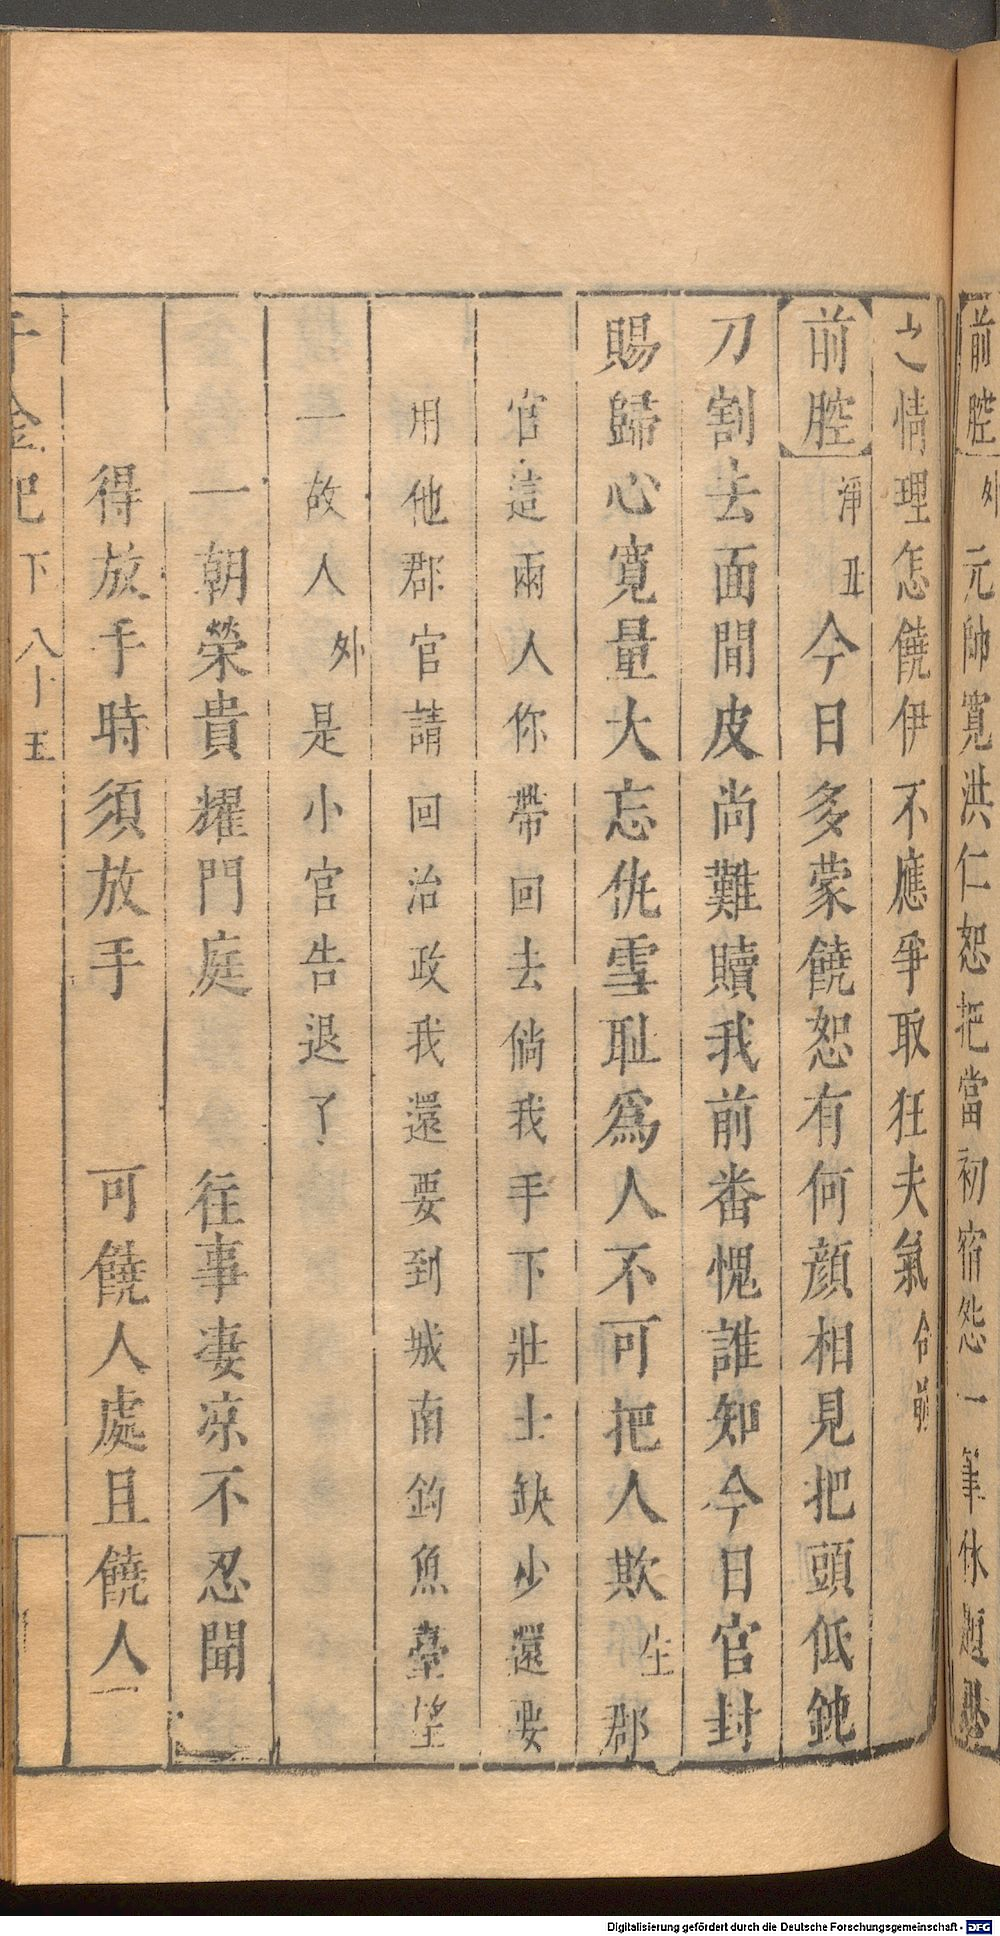 前腔 外 元帥寬洪仁恕把當初宿怨一筆休題
之情理怎饒伊不應爭取狂夫氣 合前
前腔 淨丑 今日多蒙饒恕有何顔相見把頭低鈍
刀割去面間皮尚難贖我前番愧誰知今日官封
賜歸心寬量大忘仇雪耻爲人不可把人欺 生 郡
官這兩人你帶回去倘我手下壯士缺少還要
用他郡官請回治政我還要到城南釣魚臺望
一故人 外 是小官告退了
一朝榮貴耀門庭 往事凄凉不忍聞
得放手時須放手 可饒人處且饒人
千金記下 八十五
Digitalisierung gefördert durch die Deutsche Forschungsgemeinschaft - DFG